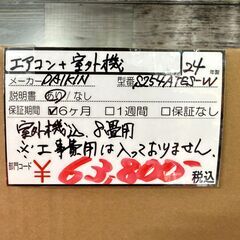 エアコン+室外機 24年製
メーカー DAIKIN 型番 S254ATES-W
説明書 あり/なし
保証期間 ☑6ヶ月 □1週間 □保証なし
室外機込、8畳用
※工事費用は入っておりません。
部門コード ¥63,800- 税込